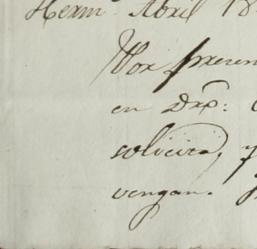 Herm. Abril 18
Por presen
en Dro: 
solicita, y
vengan.